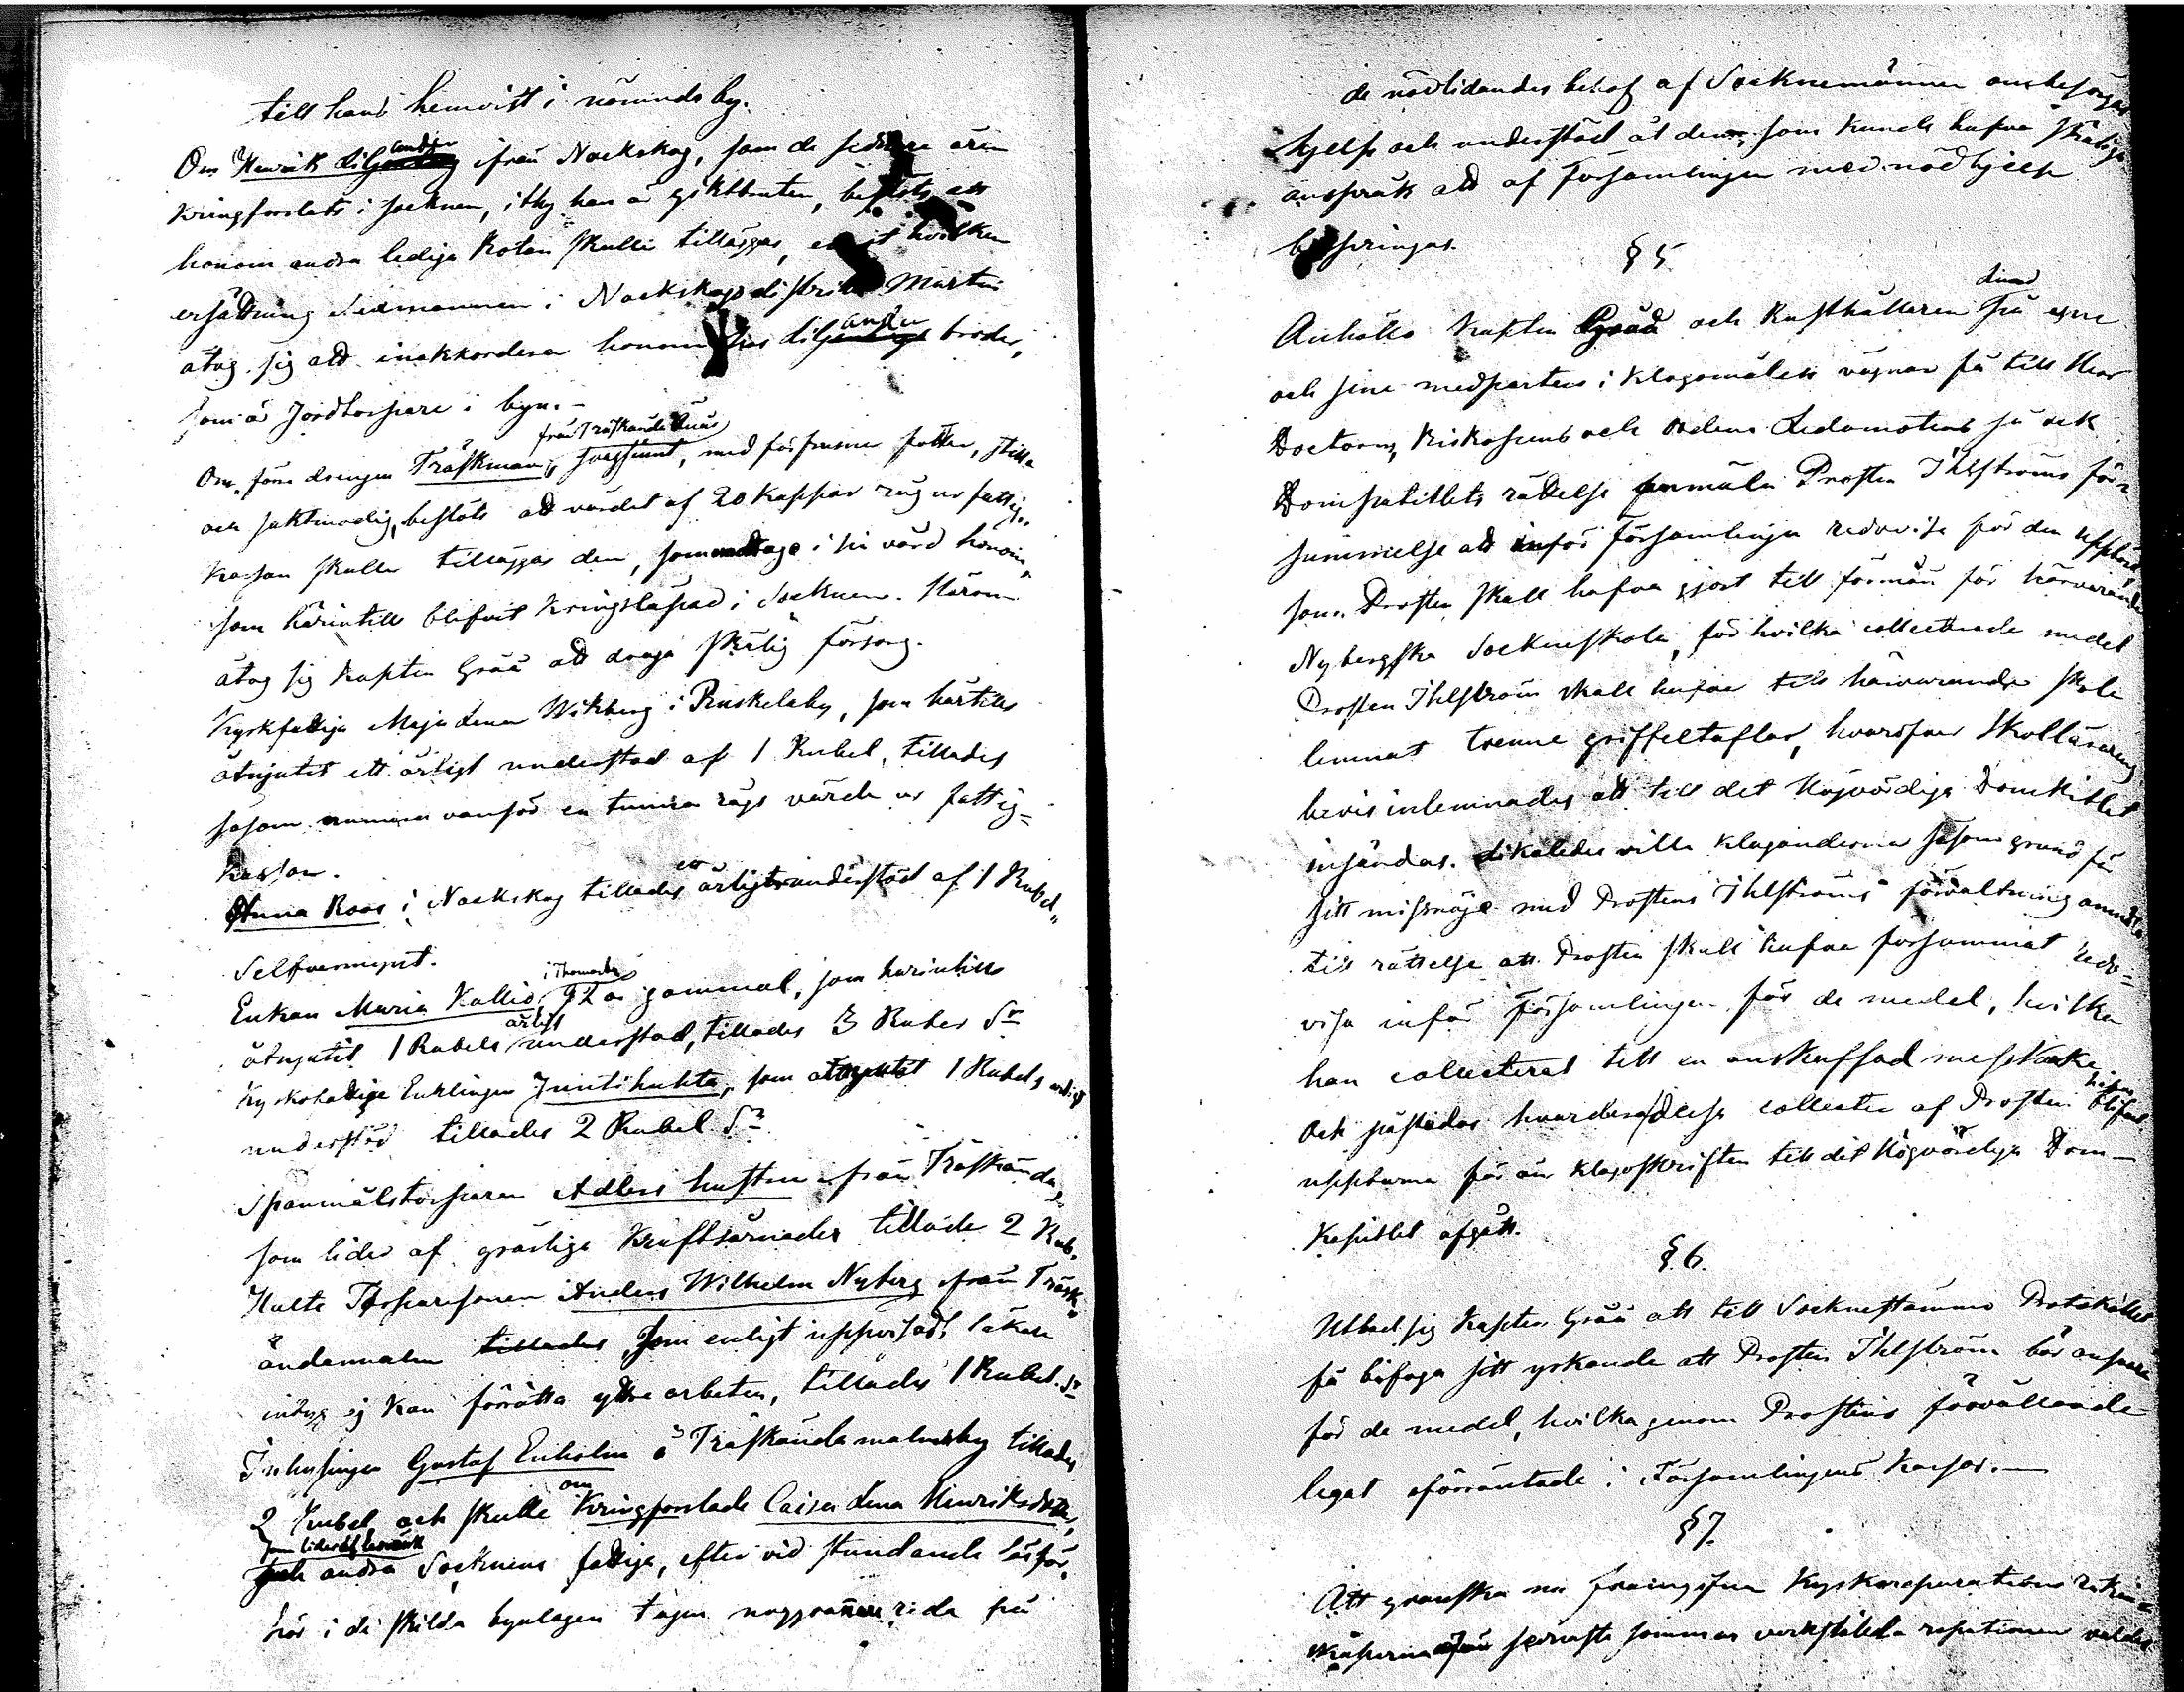 till hans hemvist i nämnda by.
Om Henrik Liljander ifrån Nackskog, som de sednare åren
kringforslats i socknen, ithy han är giktbruten, beslöts att
honom andra lediga Rotan skulle tilläggas, emot hvilken
ersättning Sexmannen i Nackskogs distrikt Martin
åtog sig att inakkordera honom hos Liljanders broder,
som är Jordtorpare i byn.-
från Träskända
Om förre drengen Träskman, med förfrusna fötter, stilla
och saktmodig, beslöts att värdet af 20 Kappar råg ur fattig-
kassan skulle tilläggas den, som i sin vård honom,
som härintills blifvit kringsläpad i Socknen. Härom
åtog sig Kapten Gråå att draga skälig försorg.
Kyrkfattiga Maja Lena Wikberg i Ruskelaby, som härtills
åtnjutit ett årligt understöd af 1 Rubel, tillades
såsom numera vanför en tunna rågs värde ur fattig-
kassan.
Anna Roos i Nackskog tillades årligt understöd af 1 Rubel
Silfvermynt.
Enkan Maria Kallio, i Thomasby 92 år gammal, som härintills
åtnjutit 1 Rubels årligt understöd, tillades 3 Rubel Sr
Kyrkofattige Enklingen Juntihuhta, som åtnjutit 1 Rubels årligt
understöd tillades 2 Rubel Sr
Spanmålstorparen Adlers hustru från Träskända,
som lider af gräsliga Kräftsårnader tillade 2 Rub.
Halte Torparesonen Anders Wilhelm Nyberg från Träsk-
ändamalm tillades som enligt uppvisadt läkare
intyg ej kan förrätta yttre arbeten, tillades 1 Rubel Sr
Inhysingen Gustaf Enholm å Träskända malmsby tillades
2 Rubel och skulle om Kringforslade Caisa Lena Henriksdotter,
och andra Socknens fattiga, efter vid stundande läsför-
hör i de skilda byalagen tagen noggrannare reda på
de nödlidandes behof af Socknemännen ombesörjas
hjelp och understöd åt dem, som kunde hafva skäliga
anspråk att af Församlingen med nödhjelp
bispringas.
§ 5
Anhöllo Kapten Gråå och Rusthållaren Lund på egne
och sine medparters i Klagomålets vägnar få till Herr
Doctorns, Biskopens och Ordens Ledamotens så ock
Domkapitlets rättelse anmäla Prosten Ihlströms för-
summelse att inför Församlingen redovisa för den uppbörd,
som Prosten skall hafva gjort till förmån för härvarande
Nybergska Sockneskola, för hvilka collecterade medel
Prosten Ihlström skall hafva till härvarande skola
lemnat trenne griffeltaflor, hvaröfver Skollärarens
bevis inlemnades att till det Högvördiga Domkapitlet
insändas. Likaledes ville klaganderna såsom grund för
sitt missnöje med Prostens Ihlströms förvaltning anmäla
till rättelse att Prosten skall hafva försummat redo-
visa inför Församlingen för de medel, hvilka
han collecterat till en anskaffad messhake
Och påstodos hvardera dessa collecter af Prosten hafva blifvit
uppburna för än klagoskriften till det Högvördiga Dom-
Kapitlet afgått.
§ 6.
Utbad sig Kapten Gråå att till Sockenstämmo Protokollet
få bifoga sitt yrkande att Prosten Ihlström bör ansvara
för de medel, hvilka genom Prostens förvållande
legat oförräntade i Församlingens Kassor.—
§ 7.
Att granska nu Kyrkoreparations räken-
skaperna sednaste sommar verkstälda reparationer valdes